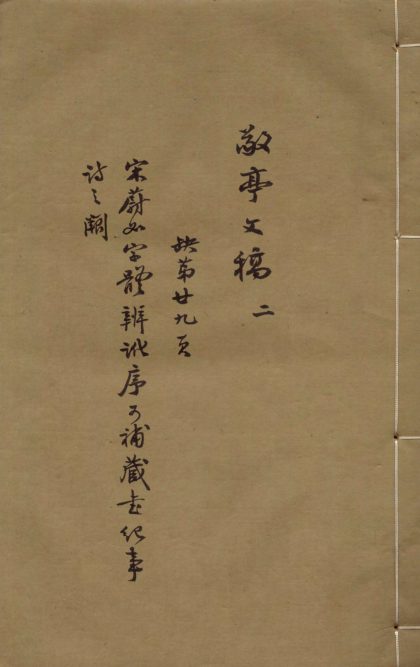 敬亭文稿 二
缺第廿九頁
宋蔚如字體辨訛序可補藏書紀事
詩之闕